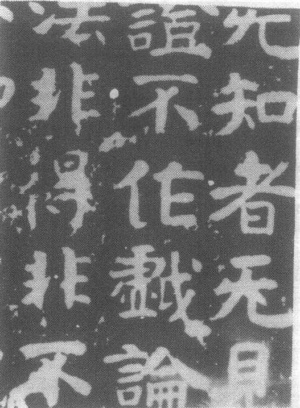 无知者无見
誼不作戱論
法非得非不